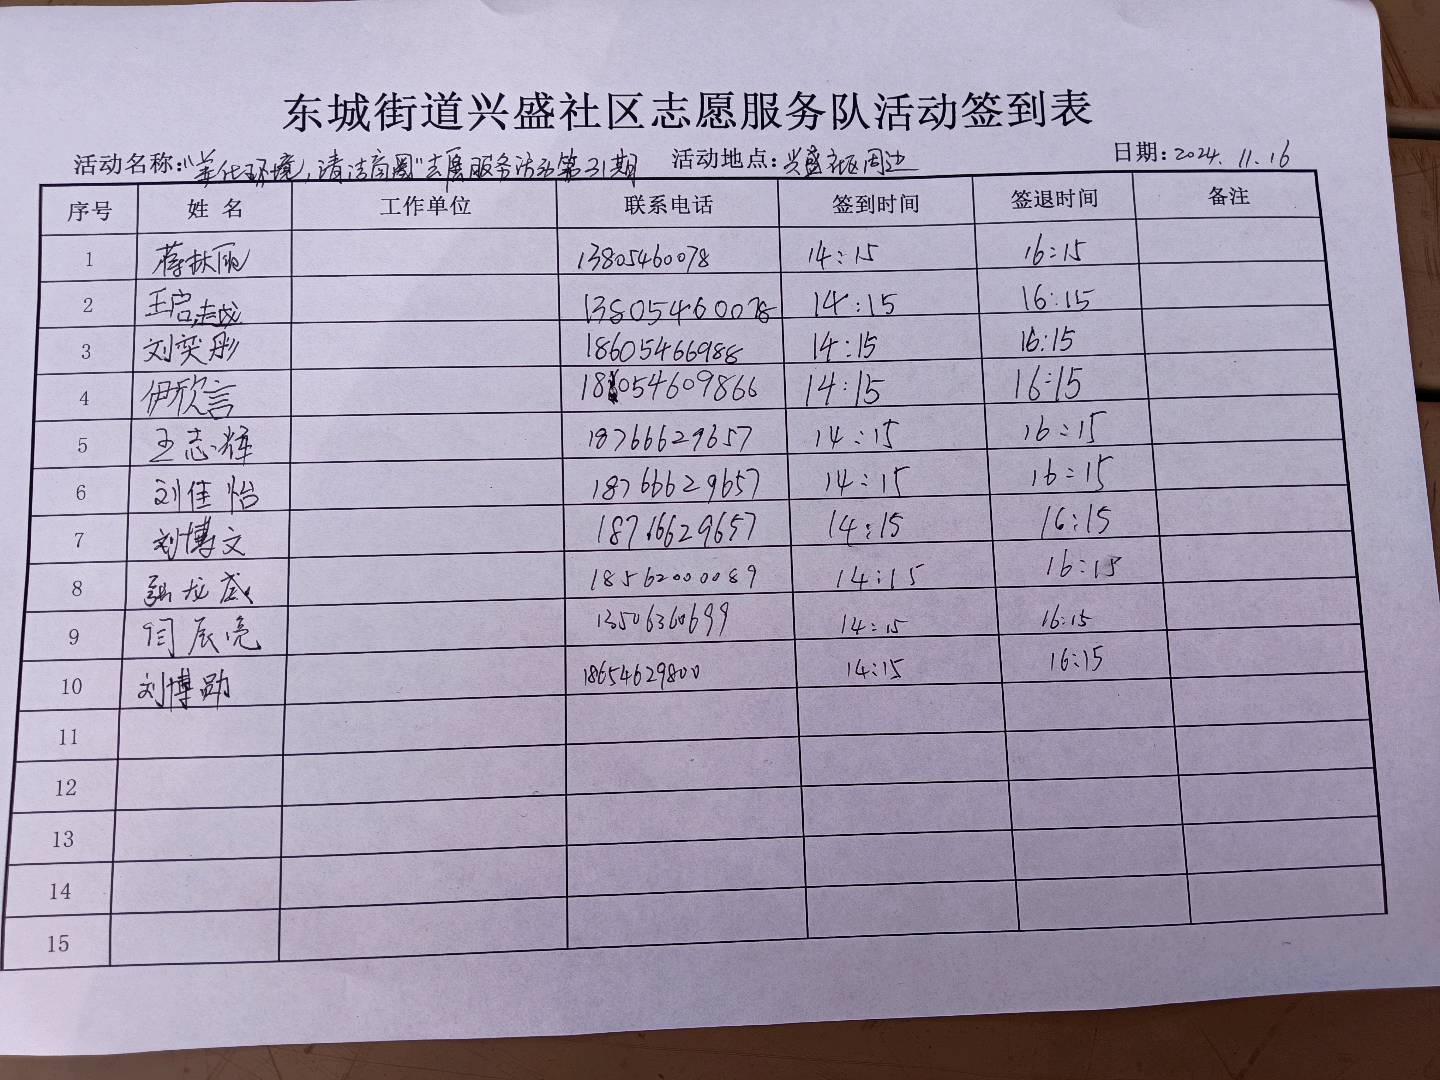 东城街道兴盛社区志愿服务队活动签到表
活动名称:"美化环境,清洁商圈"志愿服务活动第31期 活动地点:兴盛社区周边 日期:2024.11.16
序号 姓名 工作单位 联系电话 签到时间 签退时间 备注
1 蒋秋丽 13805460078 14:15 16:15
2 王启越 13805460078 14:15 16:15
3 刘奕彤 18605466988 14:15 16:15
4 伊欣言 14:15 16:15
5 王志辉 18766629657 14:15 16:15
6 刘佳怡 18766629657 14:15 16:15
7 刘博文 18766629657 14:15 16:15
8 18562000089 14:15 16:15
9 闫辰亮 13506360699 14:15 16:15
10 刘博勋 18654629800 14:15 16:15
11
12
13
14
15